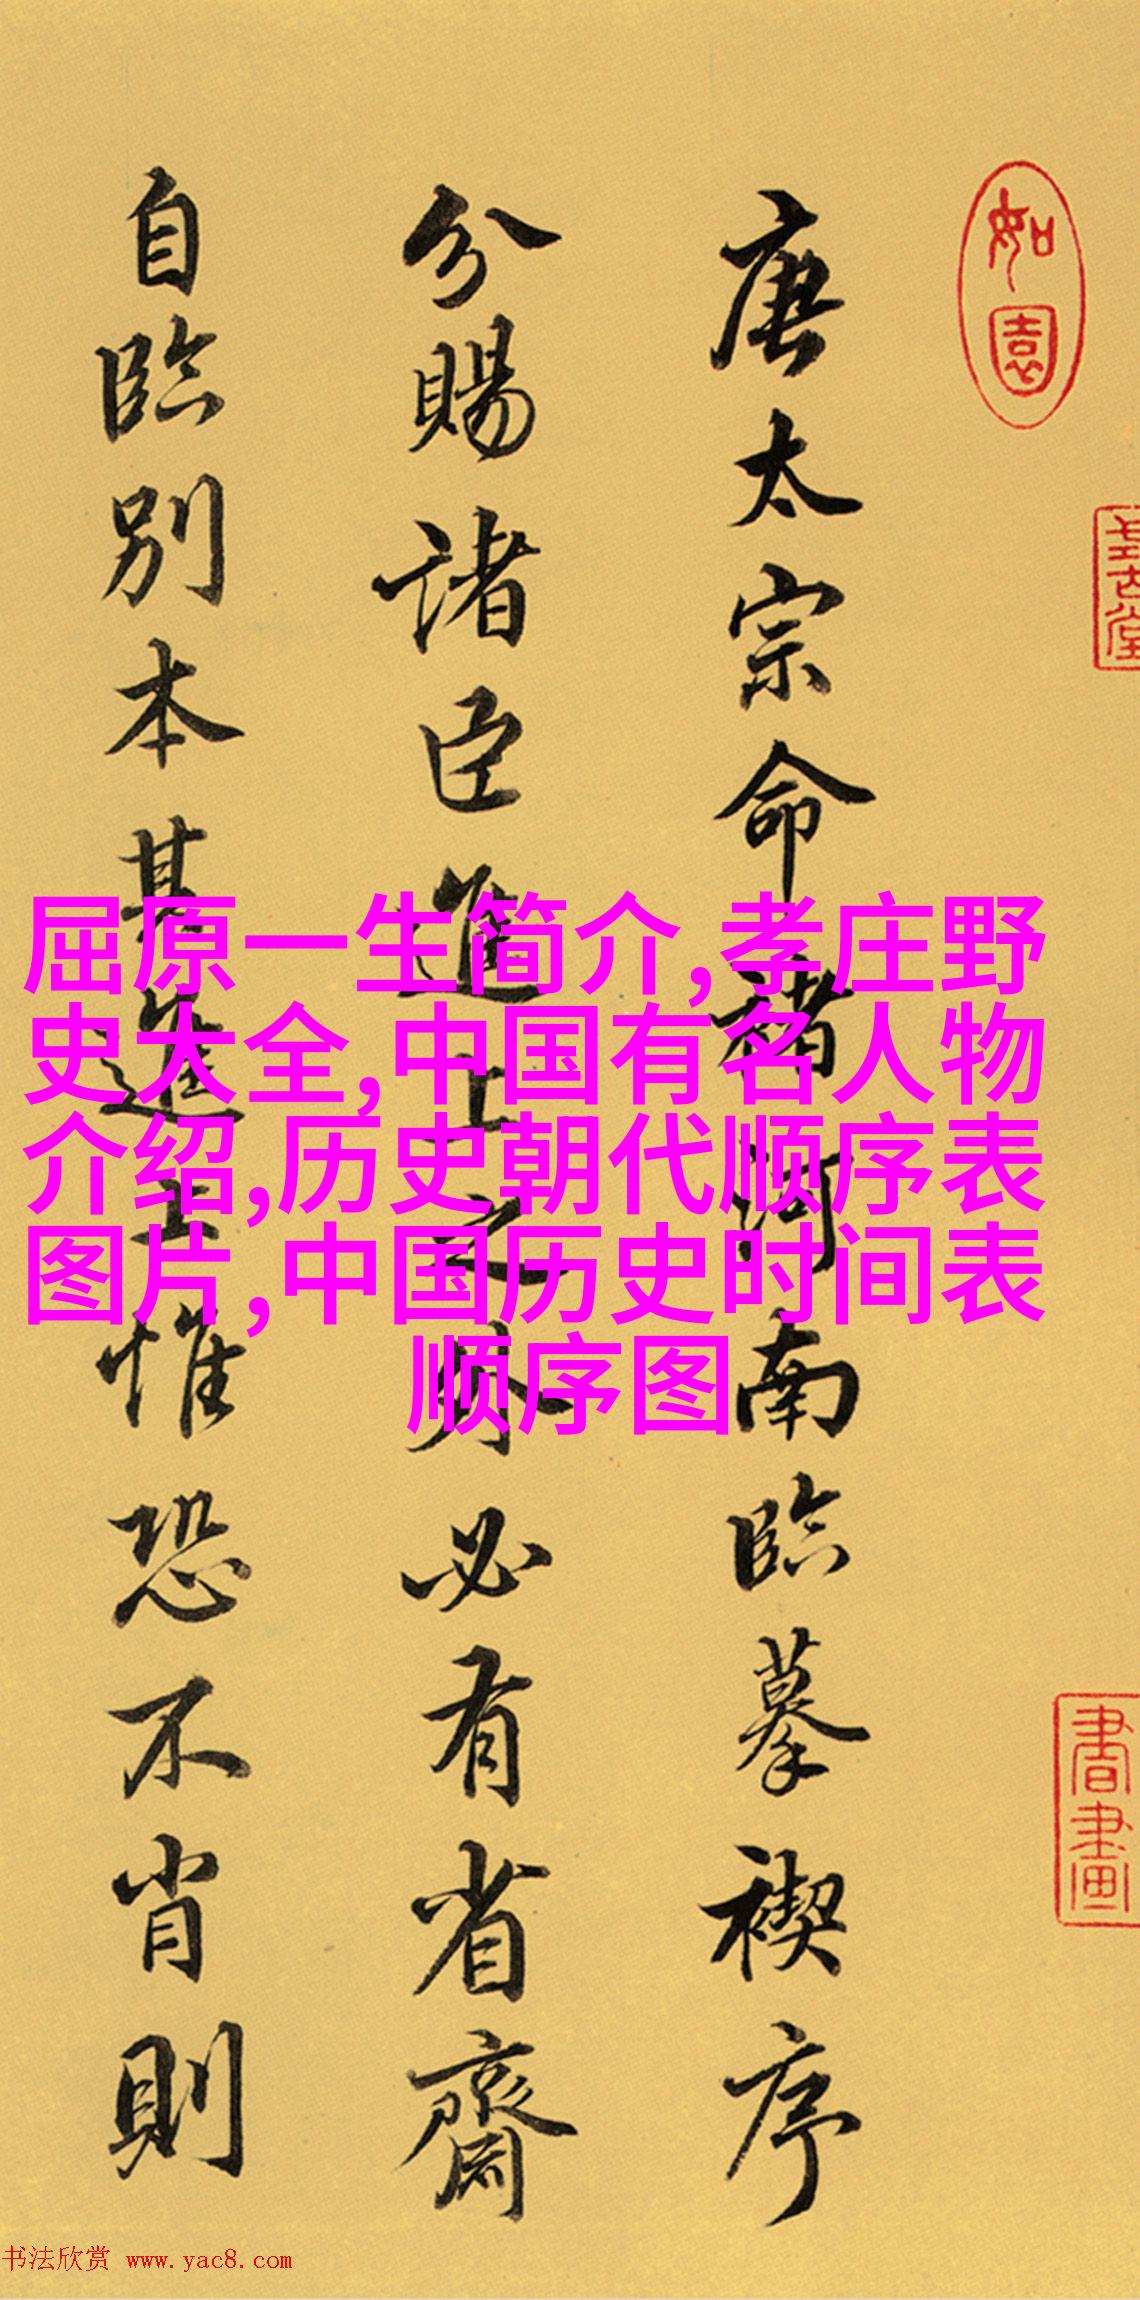 如園
書畫
唐太宗命褚河南臨摹禊序
分賜諸臣進上之外必有省齋
自臨別本其進上惟恐不肖則
屈原一生简介,孝庄野
史大全,中国有名人物
介绍,历史朝代顺序表
图片,中国历史时间表
顺序图
书法欣赏 www.yac8.com